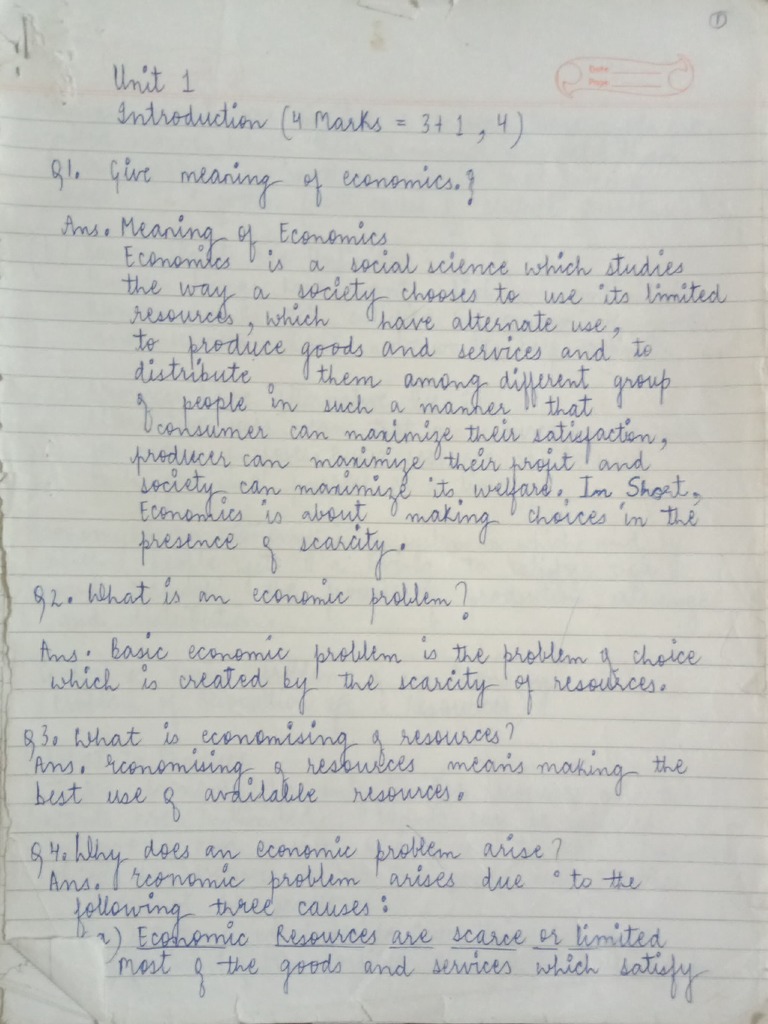 1
Unit 1
Introduction (4 Marks = 3+1, 4)
Q1. Give meaning of economics.?
Ans. Meaning of Economics
Economics is a social science which studies
the way a society chooses to use its limited
resources, which have alternate use,
to produce goods and services and to
distribute them among different group
of people in such a manner that
consumer can maximize their satisfaction,
producer can maximize their profit and
society can maximize its welfare. In Short,
Economics is about making choices in the
presence of scarcity.
Q2. What is an economic problem?
Ans. Basic economic problem is the problem of choice
which is created by the scarcity of resources.
Q3. What is economising of resources?
Ans. Economising of resources means making the
best use of available resources.
Q4. Why does an economic problem arise?
Ans. Economic problem arises due to the
following three causes:
a) Economic Resources are scarce or limited
Most of the goods and services which satisfy